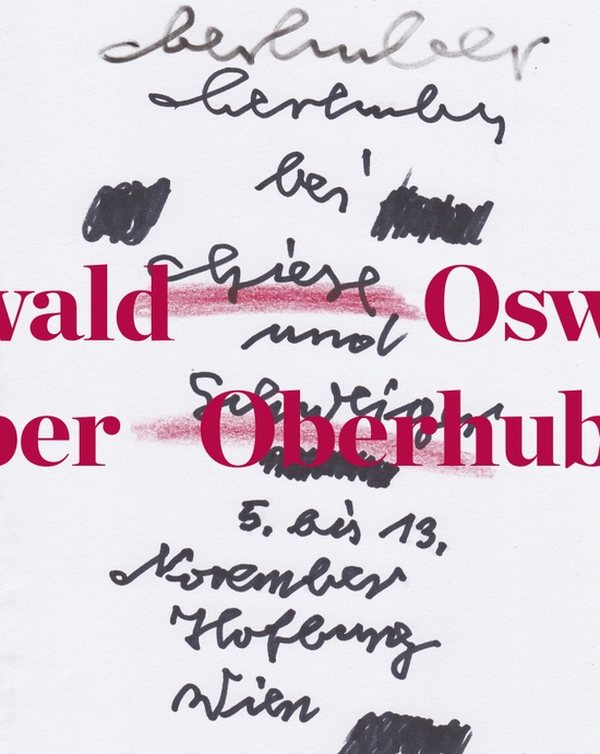 Oberhuber
Oberhuber
bei
Giese
wald Osw
und
Schweiger
ber Oberhub
5. bis 13.
November
Hofburg
Wien